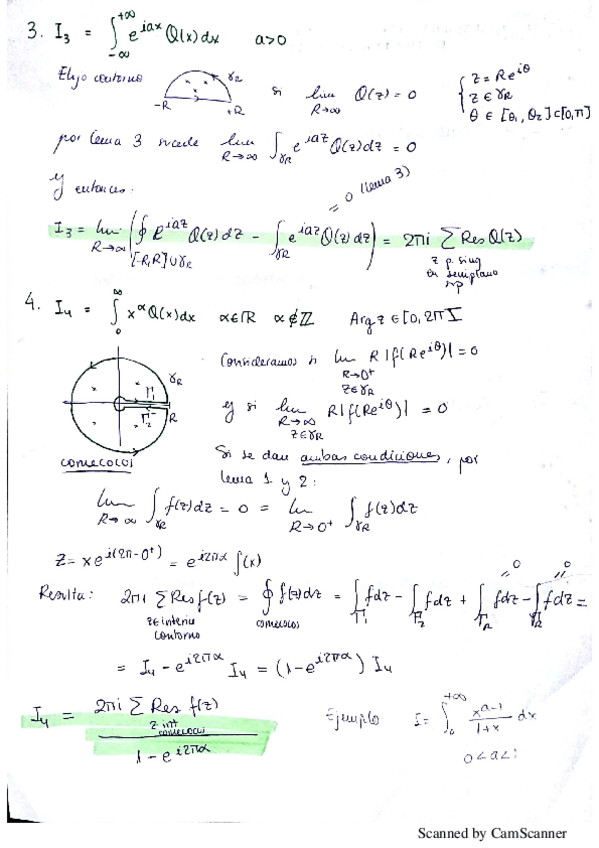 3. I₃ = ∫_{-∞}^{+∞} e^{iax} Q(x) dx a>0
Elijo contorno -R +R γ_R si lim_{R→∞} Q(z) = 0 { z = Re^{iθ} z ∈ γ_R θ ∈ [θ₁, θ₂] ⊂ [0, π]
por lema 3 sucede lim_{R→∞} ∫_{γ_R} e^{iaz} Q(z) dz = 0
y entonces. = 0 (lema 3)
I₃ = lim_{R→∞} ( ∮_{[-R,R]∪γ_R} e^{iaz} Q(z) dz - ∫_{γ_R} e^{iaz} Q(z) dz ) = 2πi Σ Res Q(z)
z p. sing en semiplano sup
4. I₄ = ∫_0^∞ x^α Q(x) dx α∈ℝ α∉ℤ Arg z ∈ [0, 2π[
Consideramos si lim_{R→0⁺ z∈γ_R} R |f(Re^{iθ})| = 0
γ_R Γ₁ Γ₂ R
y si lim_{R→∞ z∈γ_R} R |f(Re^{iθ})| = 0
comecocos
Si se dan ambas condiciones, por
lema 1 y 2:
lim_{R→∞} ∫_{γ_R} f(z) dz = 0 = lim_{R→0⁺} ∫_{γ_R} f(z) dz
z = x e^{i(2π-0⁺)} = e^{i2πα} f(x)
Resulta: 2πi Σ Res f(z) = ∮ f(z) dz = ∫_{Γ₁} f dz - ∫_{Γ₂} f dz + ∫_{Γ_R} f dz - ∫_{γ_R} f dz =
z∈interior contorno comecocos = 0 = 0
= I₄ - e^{i2πα} I₄ = (1 - e^{i2πα}) I₄
I₄ = 2πi Σ Res f(z) / (1 - e^{i2πα}) Ejemplo I = ∫_0^{+∞} x^{a-1}/(1+x) dx
z int comecocos 0<a<1
Scanned by CamScanner